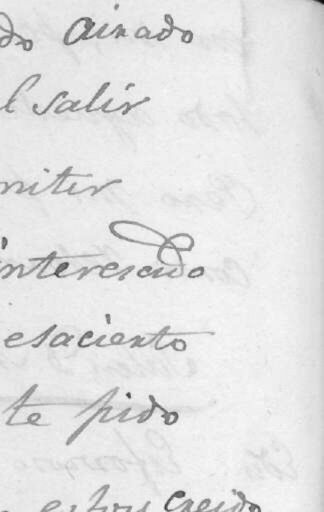 do airado
l salir
mitir
interesado
esaciento
te pido
estoy creido